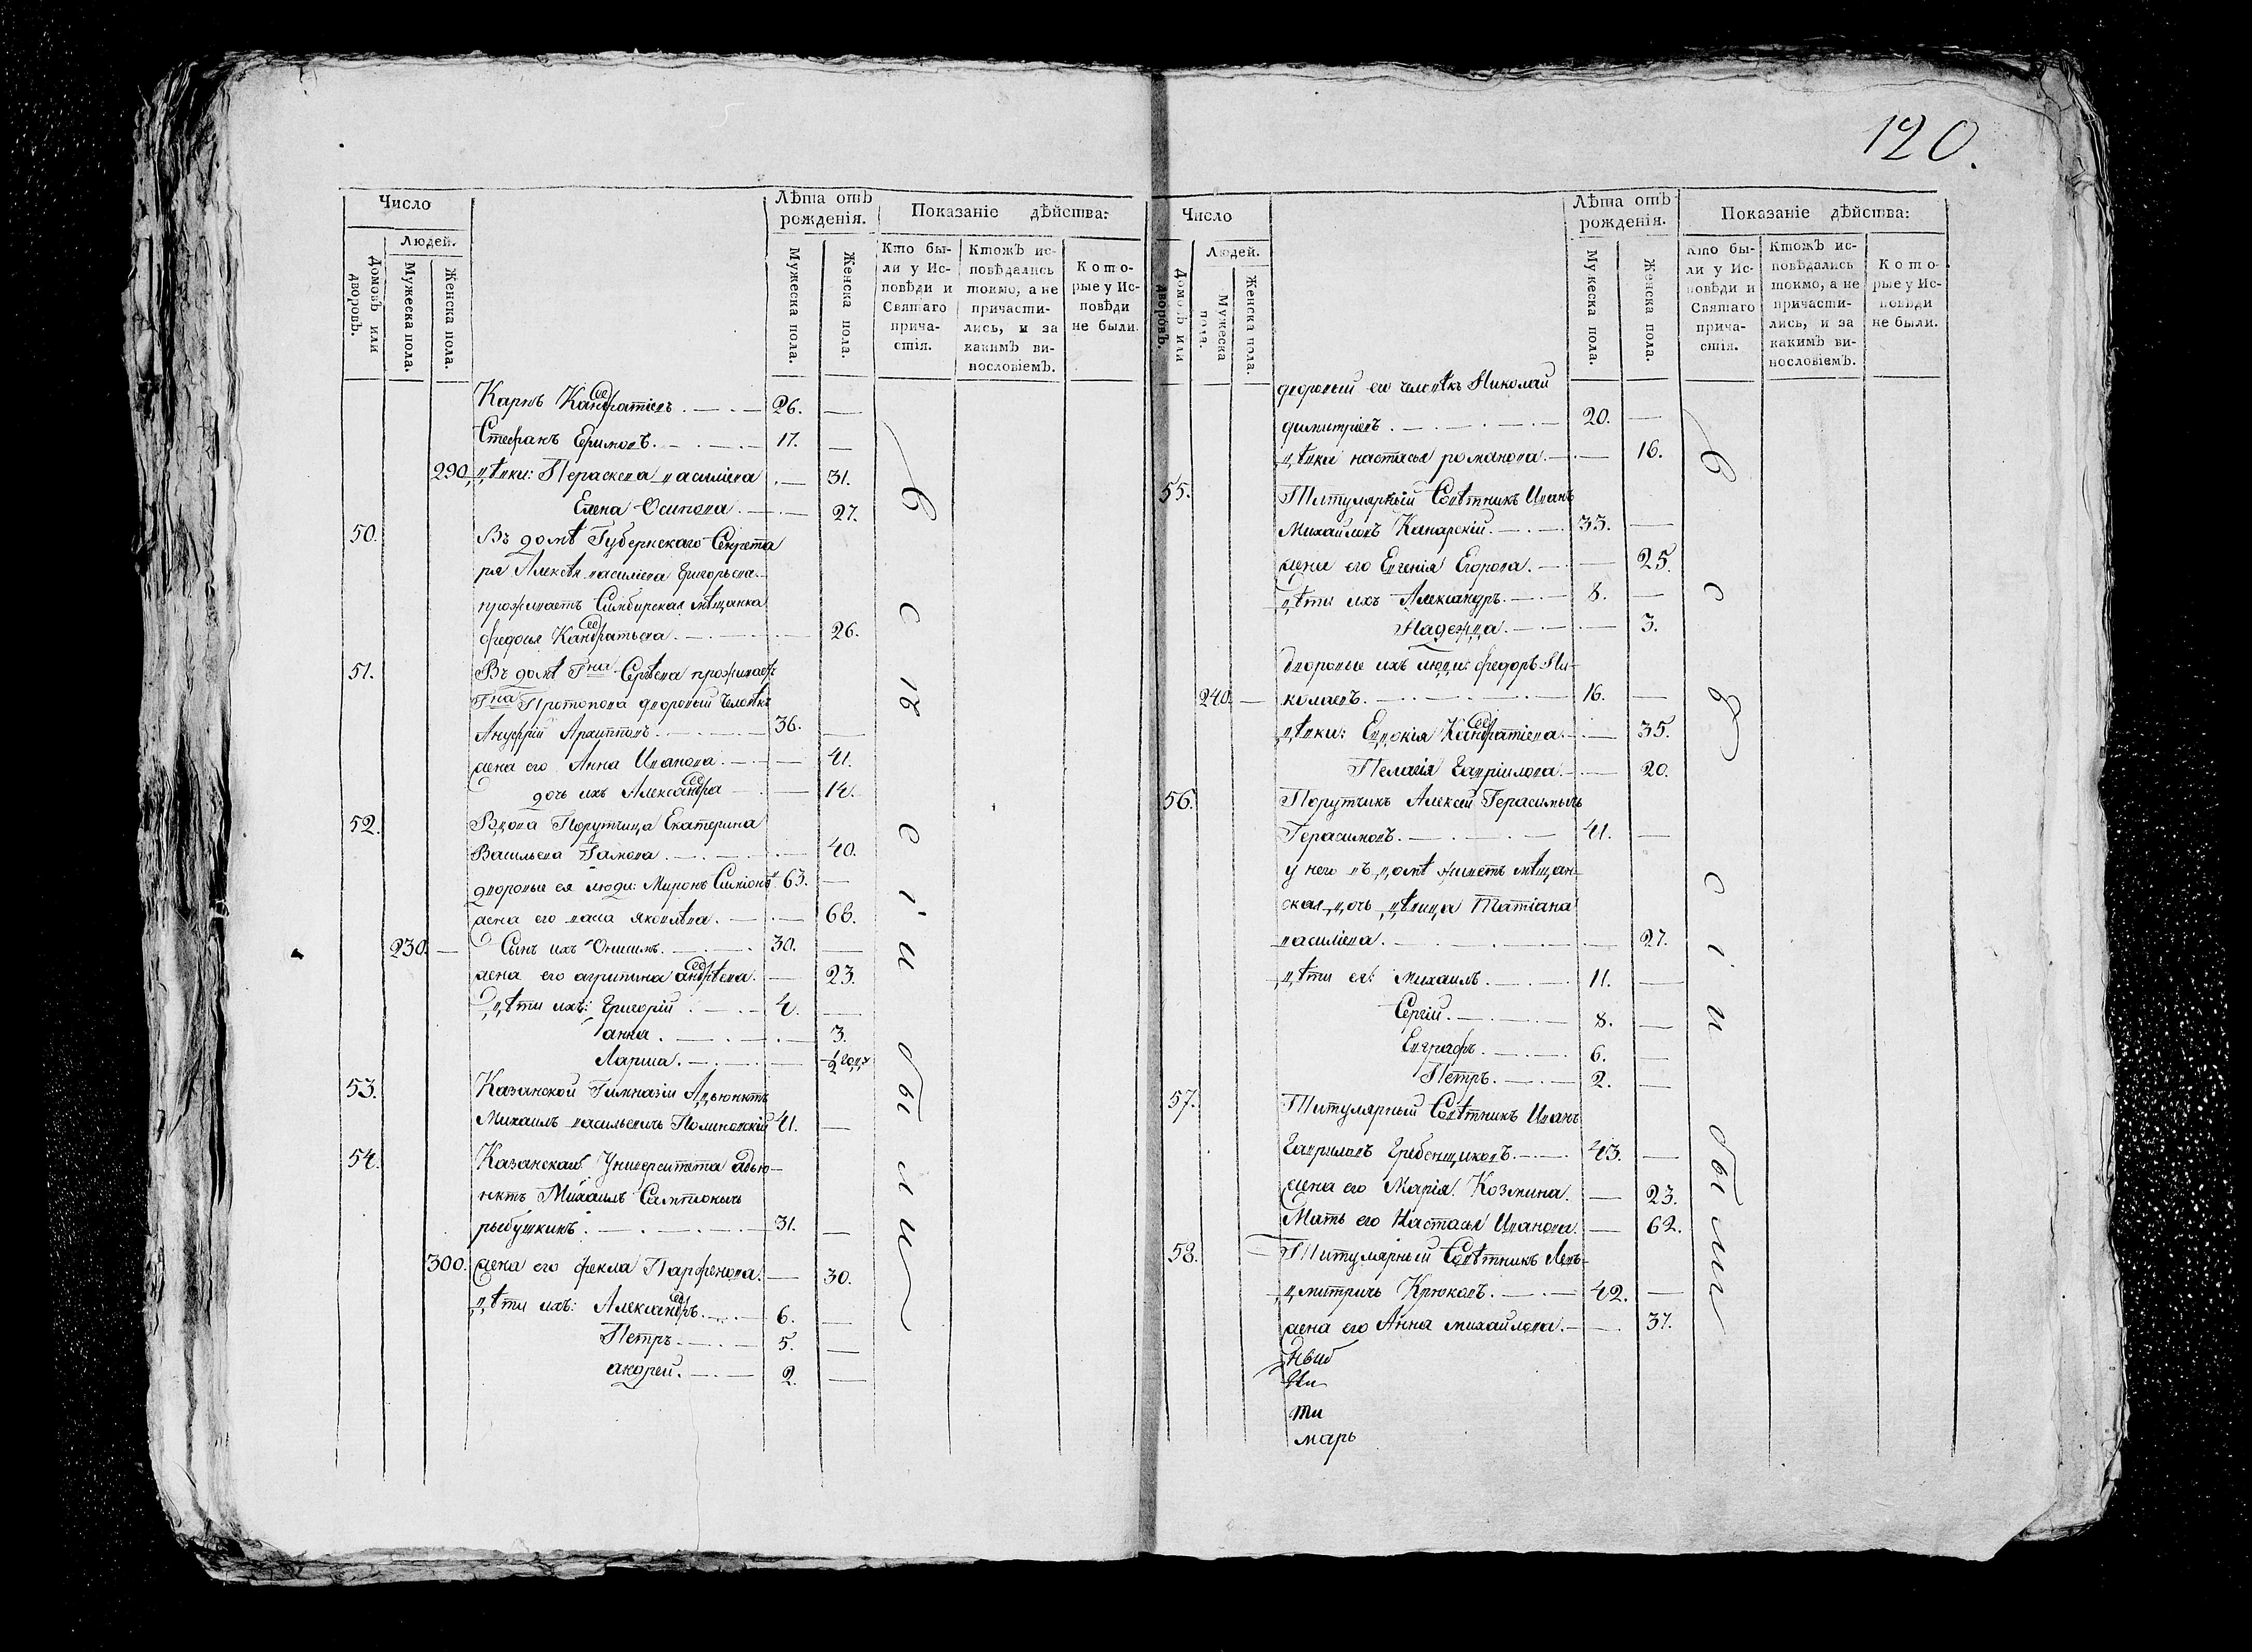 120.
Число
Людей.
Домовъ или дворовъ.
Мужеска пола.
Женска пола.
Лѣта отъ рожденія.
Мужеска пола.
Женска пола.
Показаніе дѣйства:
Кто бы-
ли у Ис-
повѣди и
Святаго
прича-
стія.
Ктожъ ис-
повѣдались
токмо, а не
причасти-
лись, и за
какимъ ви-
нословіемъ.
Кото-
рые у Ис-
повѣди
не были.
Карпъ Кандратіевъ 26.
Стефанъ Ефимовъ. 17.
290 дѣвки: Параскева василіева 31.
Елена Осипова 27.
50. Въ домѣ Губернскаго Секрета
ря Алексѣя василіева Григорьева
проживаетъ Симбирская мѣщанка
федосья Кандратьева 26.
51. Въ домѣ Гна Сергѣева проживаетъ
Гна Протопопа дворовый человѣкъ
Ануфрій Архиповъ 36.
жена его Анна Иванова 41.
дочь ихъ Александра 14.
52. Вдова Порутчица Екатерина
Васильева Гамова 40.
дворовые ея люди: Миронъ Симіоновъ 63.
жена его васса яковлѣва 66.
230 Сынъ ихъ Онисимъ 30.
жена его агрипина андрѣева 23.
дѣти ихъ: Григорій 4.
анна 3.
Лариса ½ года
53. Казанской Гимназіи Адьюнктъ
Михаилъ васильевичь Полиновскій 41.
54. Казанскаго Университета адью-
нктъ Михаилъ Самсоновичь
рыбушкинъ 31.
300. жена его фекла Парфенова 30.
дѣти ихъ: Александръ 6.
Петръ 5.
андрей 2.
всѣ исповѣди и были
Число
Людей.
Домовъ или дворовъ.
Мужеска пола.
Женска пола.
Лѣта отъ рожденія.
Мужеска пола.
Женска пола.
Показаніе дѣйства:
Кто бы-
ли у Ис-
повѣди и
Святаго
прича-
стія.
Ктожъ ис-
повѣдались
токмо, а не
причасти-
лись, и за
какимъ ви-
нословіемъ.
Кото-
рые у Ис-
повѣди
не были.
дворовый его человѣкъ Николай
димитріевъ 20.
дѣвки настасья романова 16.
55. Титулярный Совѣтникъ Иванъ
Михайловъ Канарскій 33.
жена его Евгенія Егорова 25.
дѣти ихъ Александръ 8.
Надежда 3.
Дворовые ихъ люди: федоръ Ни-
240 колаевъ 16.
дѣвки: Евдокія Кандратіева 35.
Пелагія Гавріилова 20.
56. Порутчикъ Алексей Герасимычь
Герасимовъ 41.
у него въ домѣ живетъ мѣщан-
ская дочь дѣвица Татіана
василіева 27.
дѣти ея: Михаилъ 11.
Сергій 8.
Евграфъ 6.
Петръ 2.
57. Титулярный Совѣтникъ Иванъ
Гавриловъ Гребенщиковъ 43.
жена его Марія Козмина 23.
Мать его Настасья Иванова 62.
58. Титулярный Совѣтникъ Левъ
дмитричь Крюковъ 42.
жена его Анна михайлова 37.
ти
марь